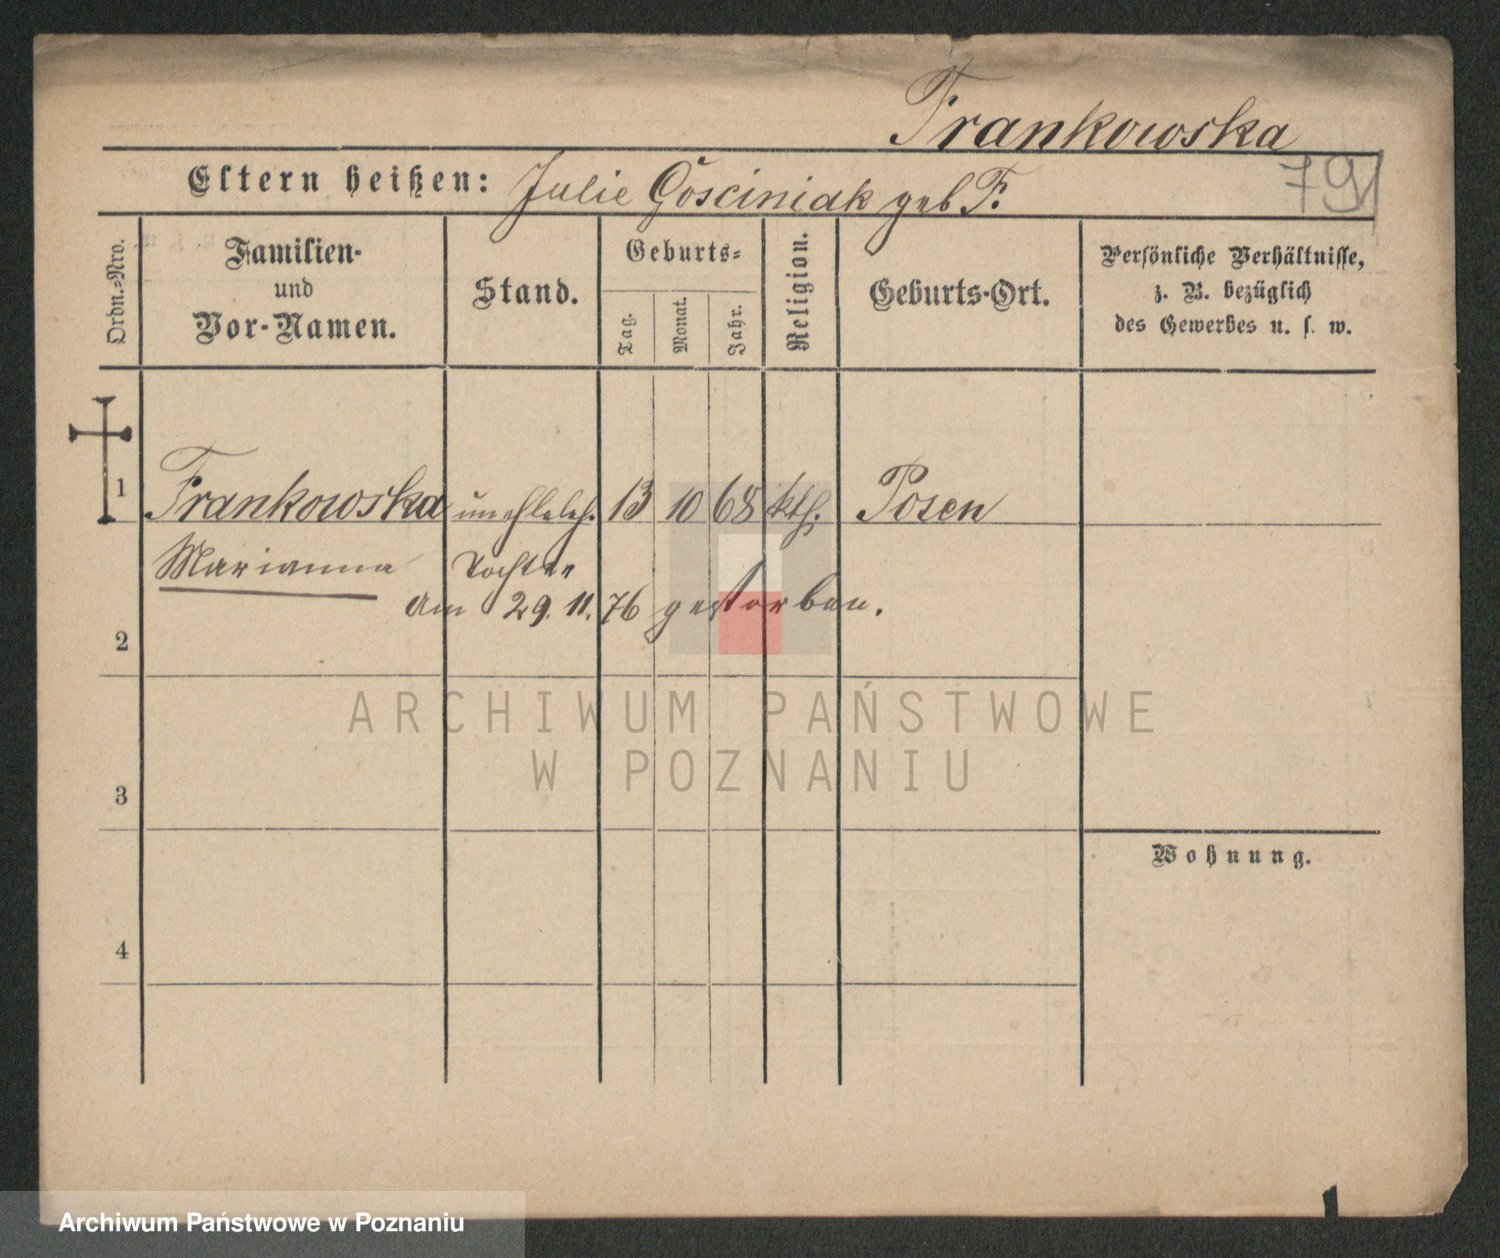 Frankowska
Eltern heißen: Julie Gościniak geb F.
791
Ordn.-Nro.
Familien-
und
Vor-Namen.
Stand.
Geburts-
Tag.
Monat.
Jahr.
Religion.
Geburts-Ort.
Persönliche Verhältnisse,
z. B. bezüglich
des Gewerbes u. s. w.
1 Frankowska unehlich. 13 10 68 kth. Posen
Marianna Tochter
am 29. 11. 76 gestorben.
2
ARCHIWUM PAŃSTWOWE
W POZNANIU
3
Wohnung.
4
Archiwum Państwowe w Poznaniu